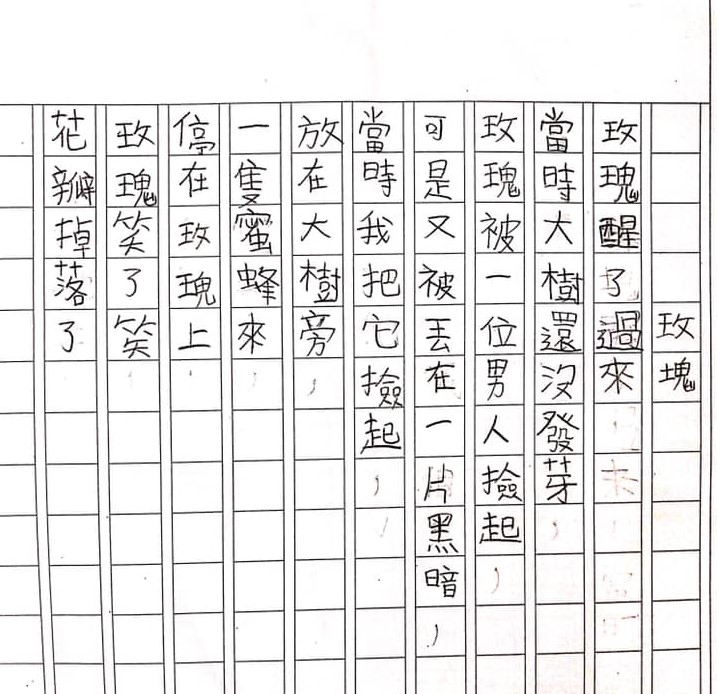 玫瑰
玫瑰醒了過來
當時大樹還沒發芽，
玫瑰被一位男人撿起，
可是又被丟在一片黑暗，
當時我把它撿起，
放在大樹旁，
一隻蜜蜂來，
停在玫瑰上，
玫瑰笑了笑，
花瓣掉落了